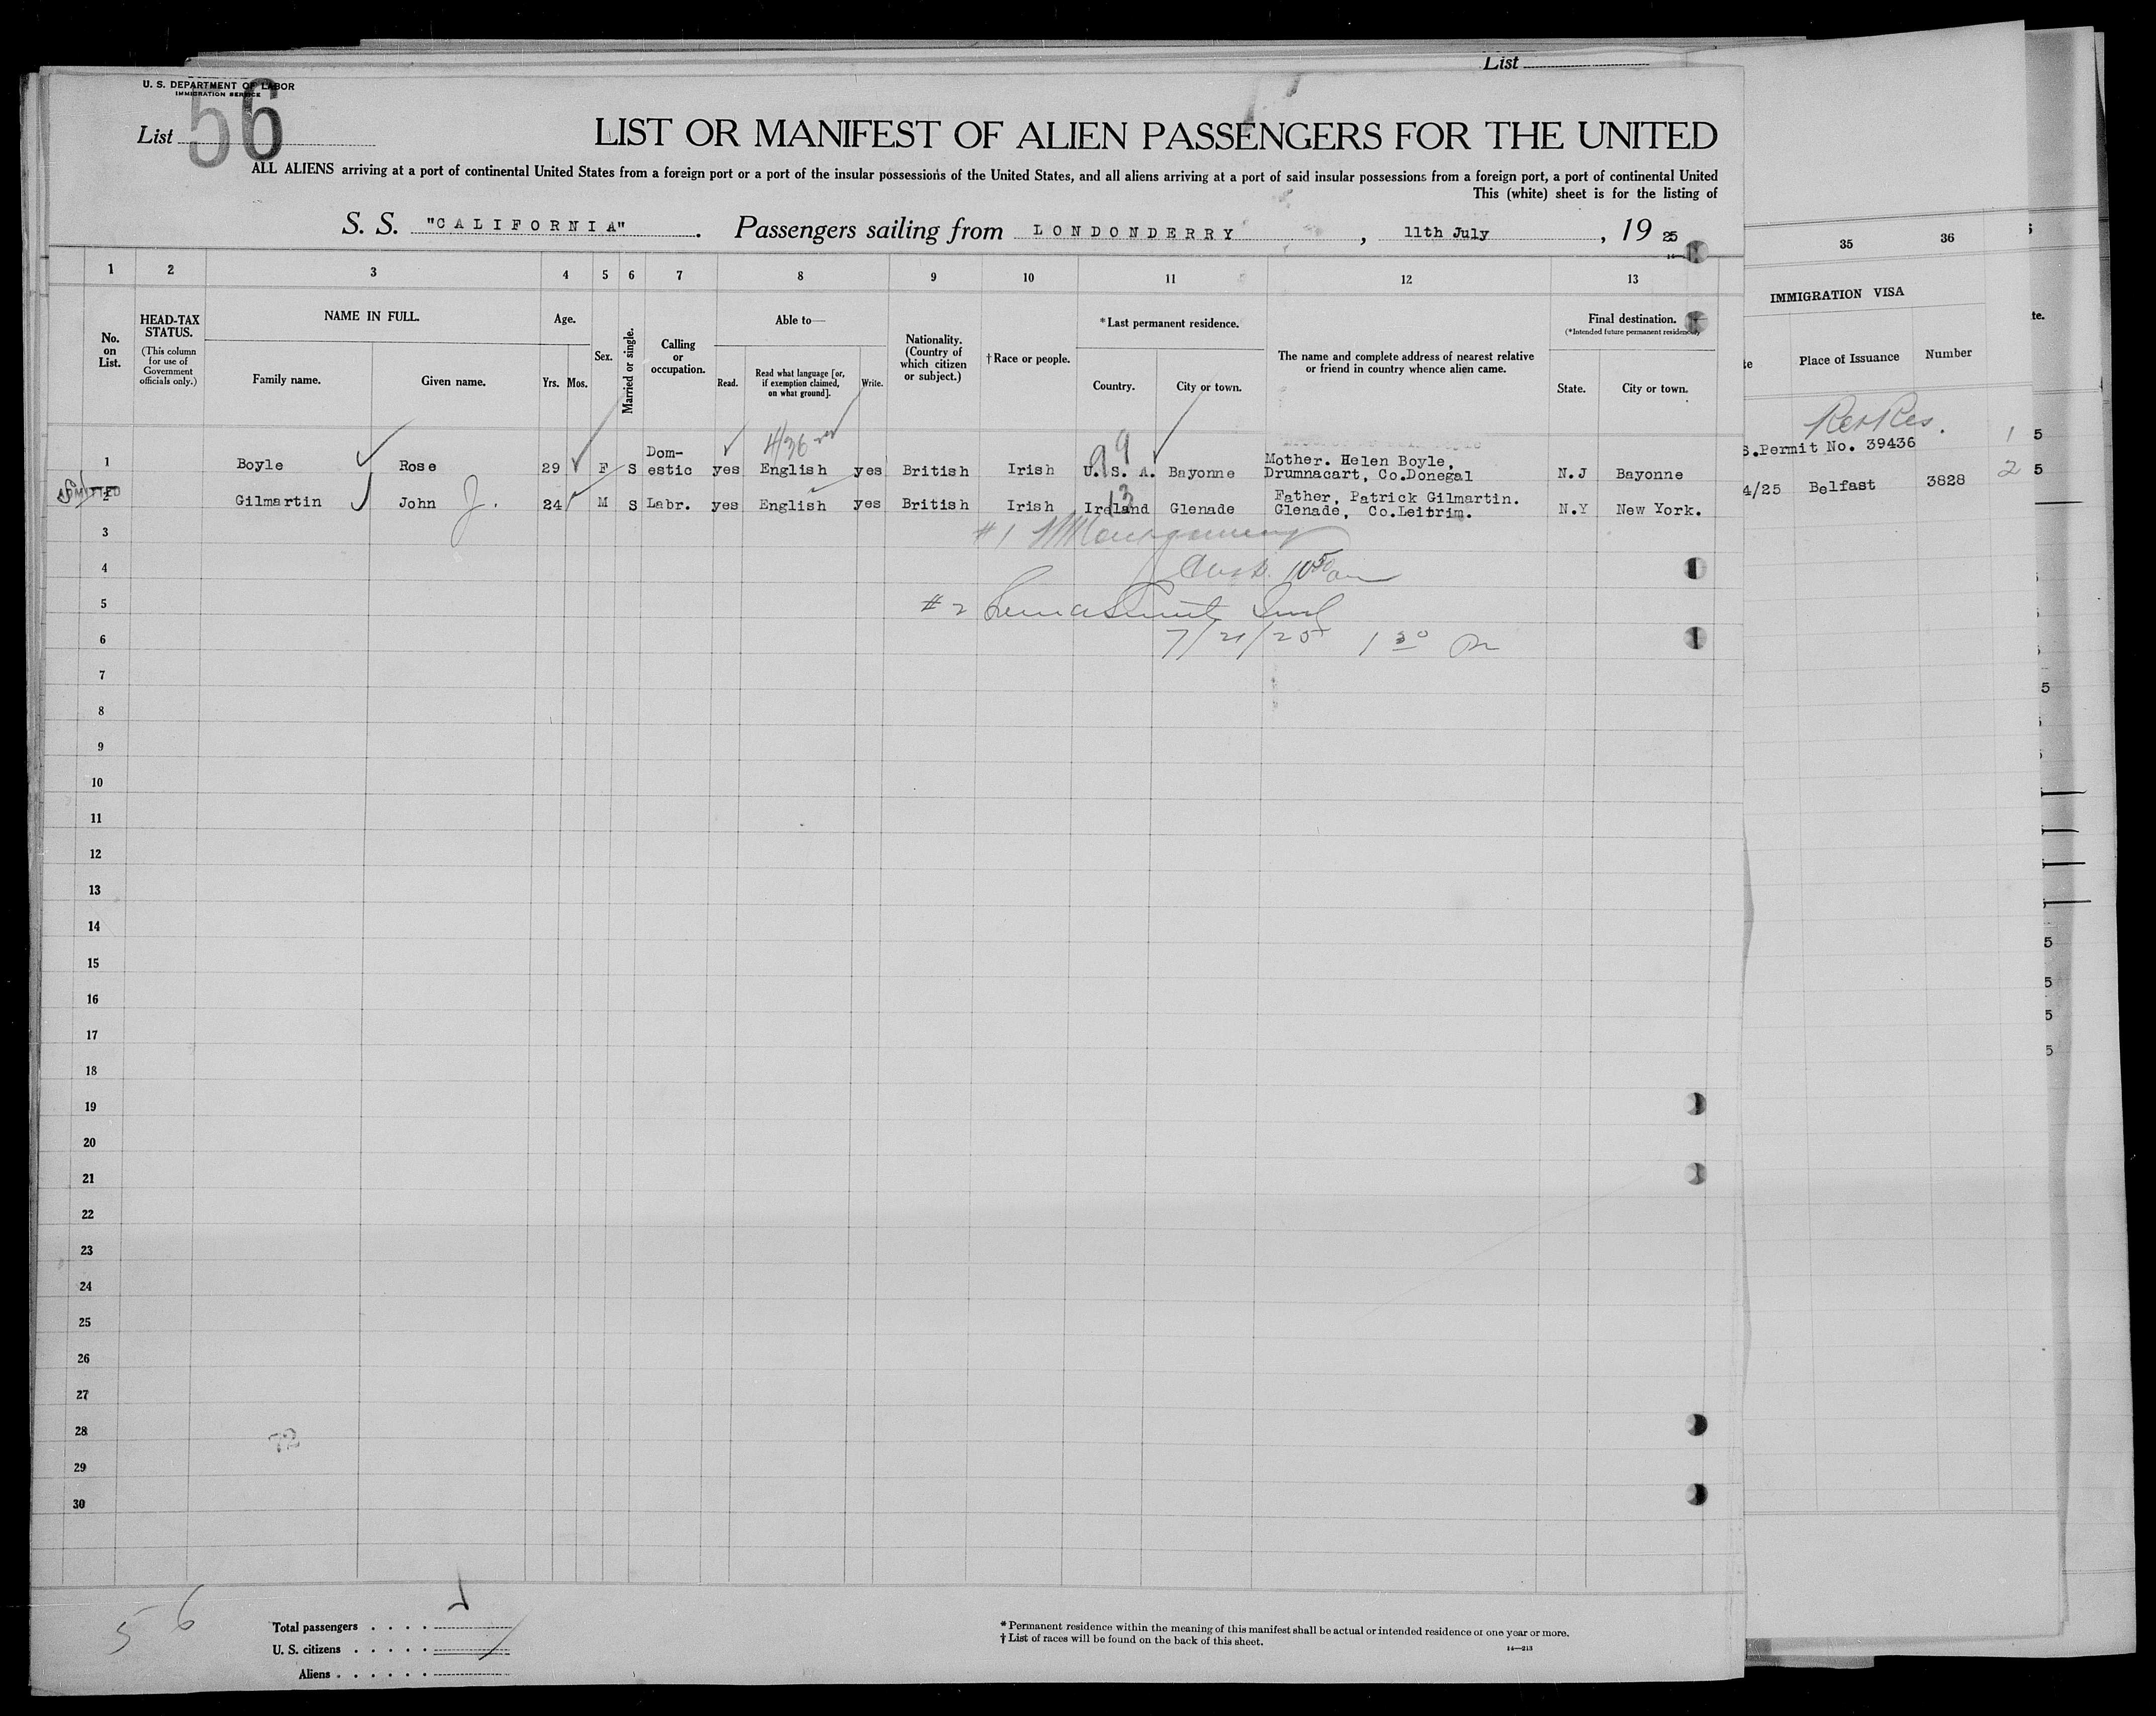 U. S. DEPARTMENT OF LABOR
IMMIGRATION SERVICE
List 56
List
LIST OR MANIFEST OF ALIEN PASSENGERS FOR THE UNITED
ALL ALIENS arriving at a port of continental United States from a foreign port or a port of the insular possessions of the United States, and all aliens arriving at a port of said insular possessions from a foreign port, a port of continental United
This (white) sheet is for the listing of
S. S. "CALIFORNIA". Passengers sailing from LONDONDERRY, 11th July, 19 25
1 2 3 4 5 6 7 8 9 10 11 12 13 35 36
No. on List.
HEAD-TAX STATUS.
(This column for use of Government officials only.)
NAME IN FULL.
Family name. Given name.
Age.
Yrs. Mos.
Sex.
Married or single.
Calling or occupation.
Able to—
Read. Read what language [or, if exemption claimed, on what ground]. Write.
Nationality. (Country of which citizen or subject.)
† Race or people.
*Last permanent residence.
Country. City or town.
The name and complete address of nearest relative or friend in country whence alien came.
Final destination.
(*Intended future permanent residence)
State. City or town.
IMMIGRATION VISA
te Place of Issuance Number
te.
4/26
99
Ret Res.
1 Boyle Rose 29 F S Dom-estic yes English yes British Irish U. S. A. Bayonne Mother. Helen Boyle, Drumnacart, Co.Donegal N.J Bayonne S.Permit No. 39436 1 5
ADMITTED
2 Gilmartin John J. 24 M S Labr. yes English yes British Irish Ireland Glenade Father, Patrick Gilmartin. Glenade, Co.Leitrim. N.Y New York. 4/25 Belfast 3828 2 5
13
3 #1 Montgomery
4 10 50 am
5 #2
6 7/21/25 1 30 Pm
7
8
9
10
11
12
13
14
15
16
17
18
19
20
21
22
23
24
25
26
27
28
29
30
56
Total passengers . . . .
U. S. citizens . . . . .
Aliens . . . . . .
* Permanent residence within the meaning of this manifest shall be actual or intended residence of one year or more.
† List of races will be found on the back of this sheet.
14—213